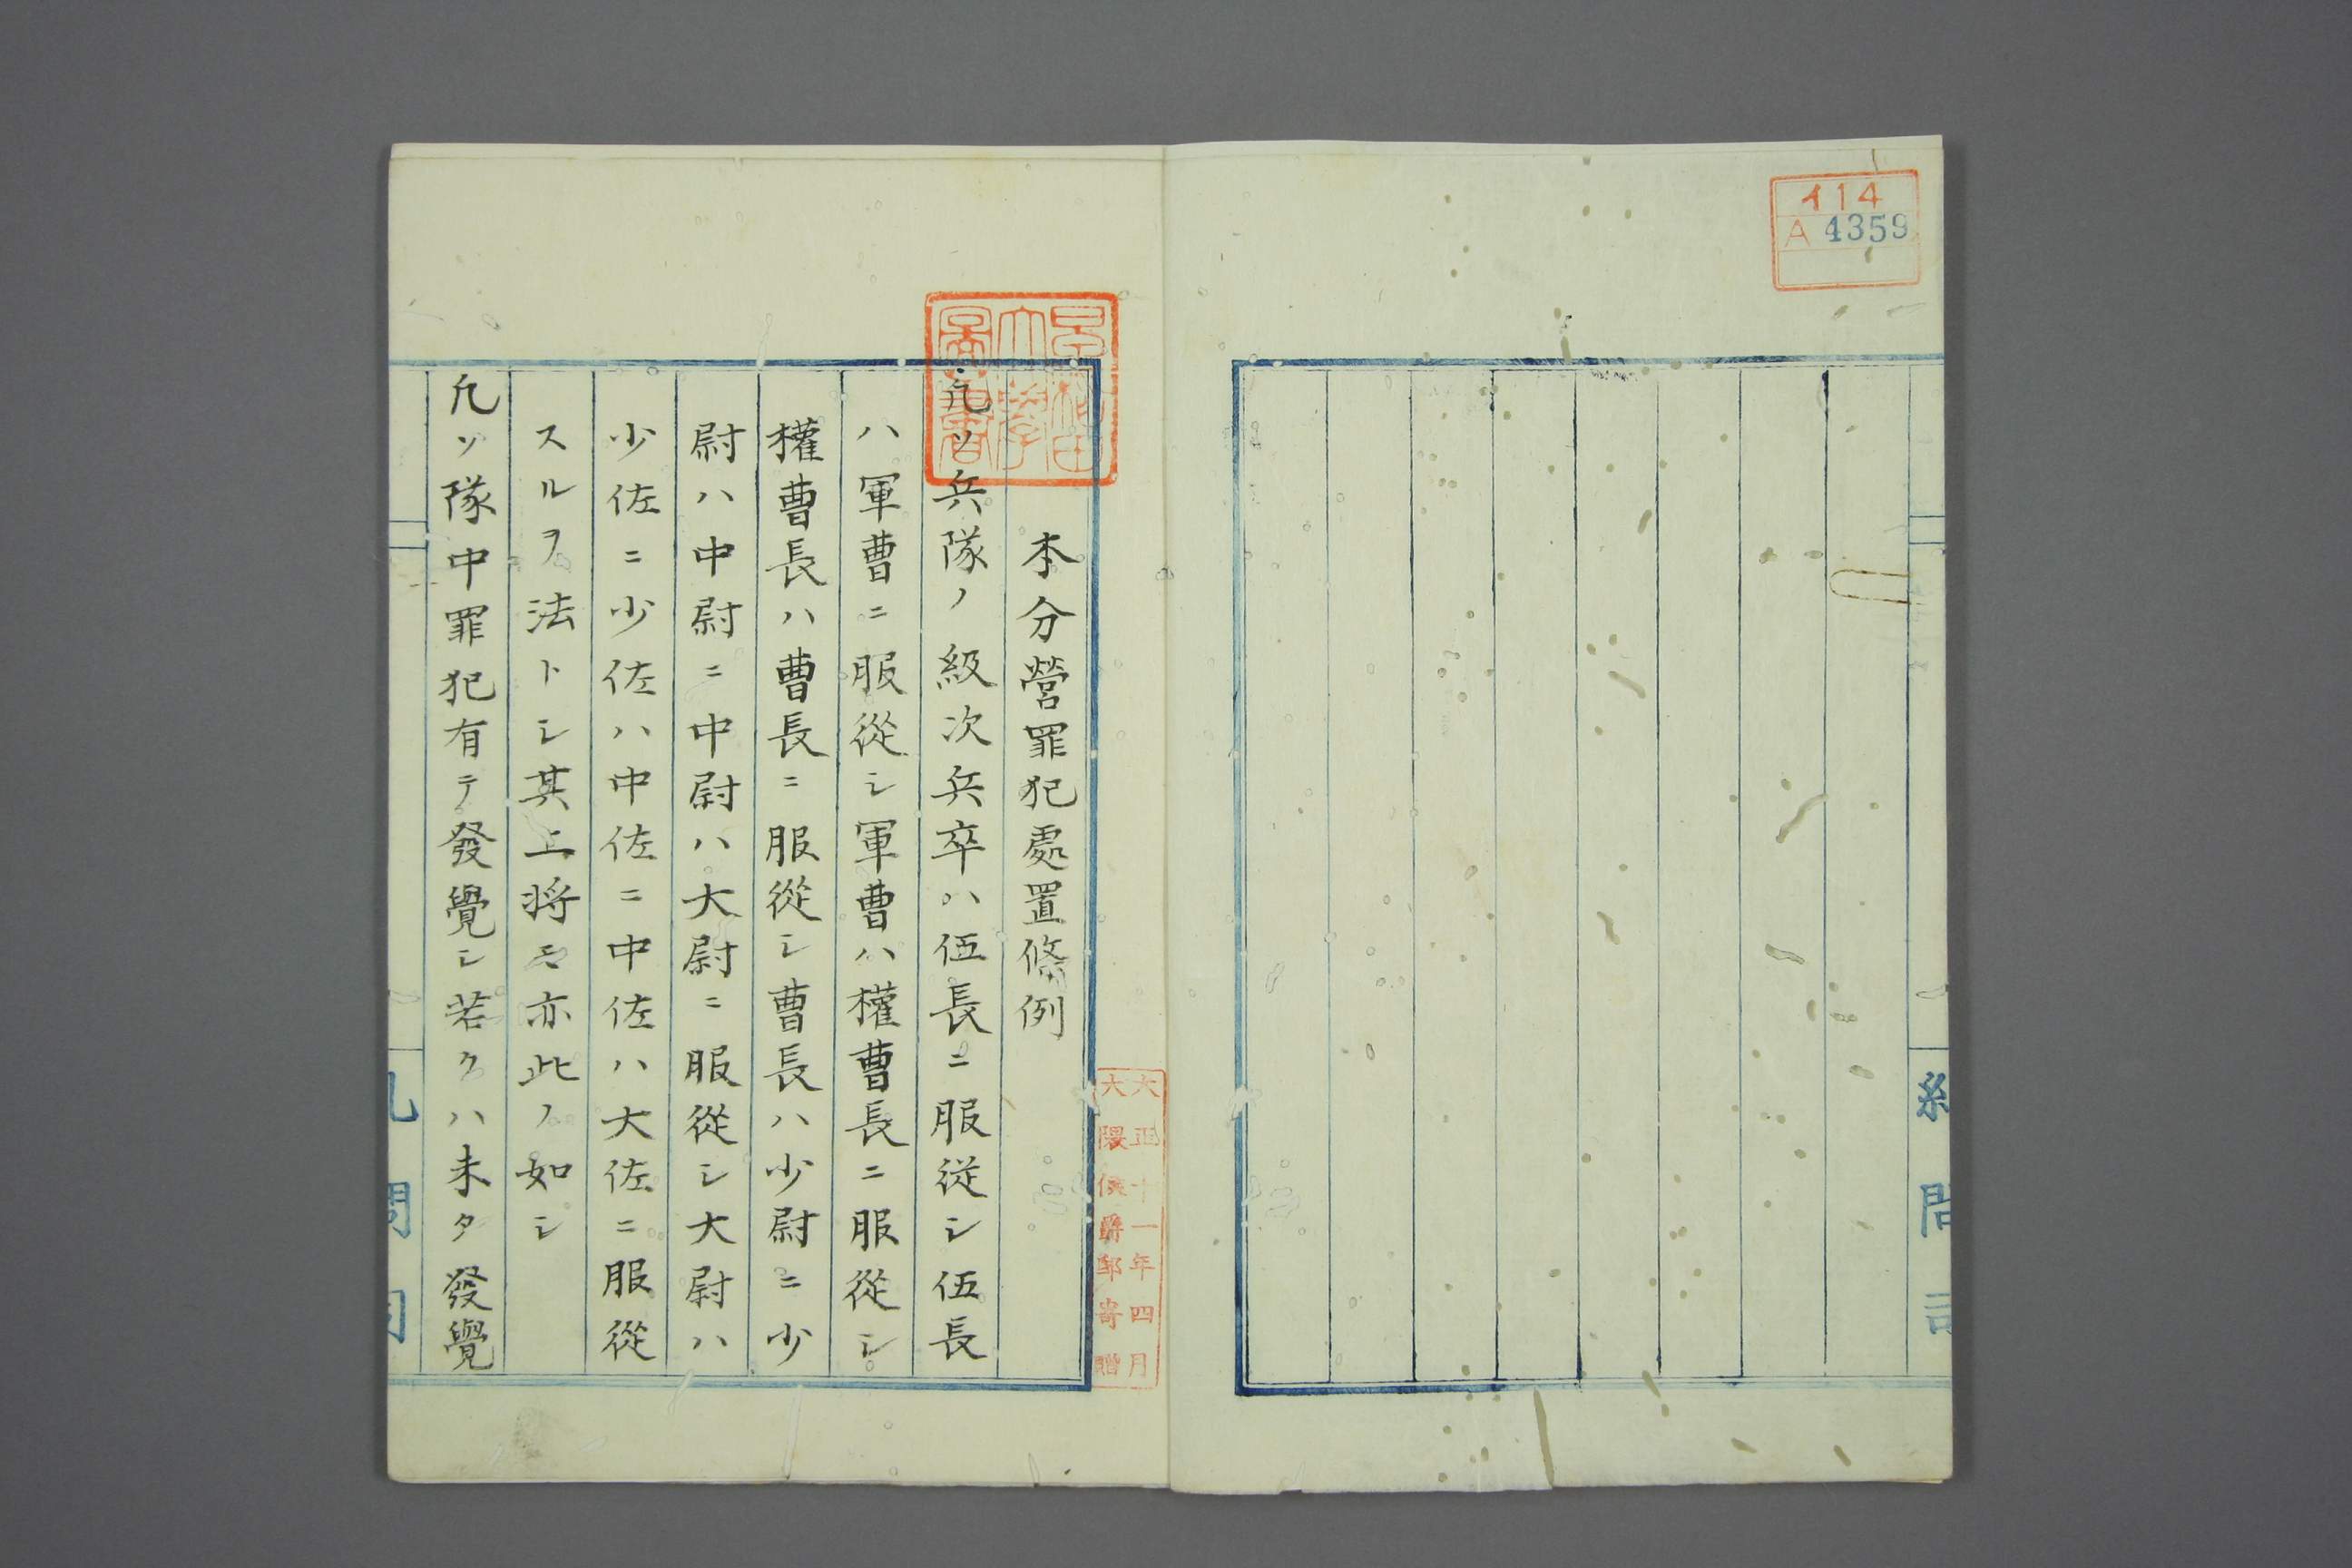 イ14
A 4359
糾問司
大正十一年四月
大隈侯爵邸寄贈
早稲田大學圖書
本分營罪犯處置條例
凢ソ兵隊ノ級次兵卒ハ伍長ニ服従シ伍長
ハ軍曹ニ服從シ軍曹ハ權曹長ニ服從シ
權曹長ハ曹長ニ服從シ曹長ハ少尉ニ少
尉ハ中尉ニ中尉ハ大尉ニ服從シ大尉ハ
少佐ニ少佐ハ中佐ニ中佐ハ大佐ニ服從
スルヲ法トシ其上將モ亦此ノ如シ
凢ソ隊中罪犯有テ發覺シ若クハ未タ發覺